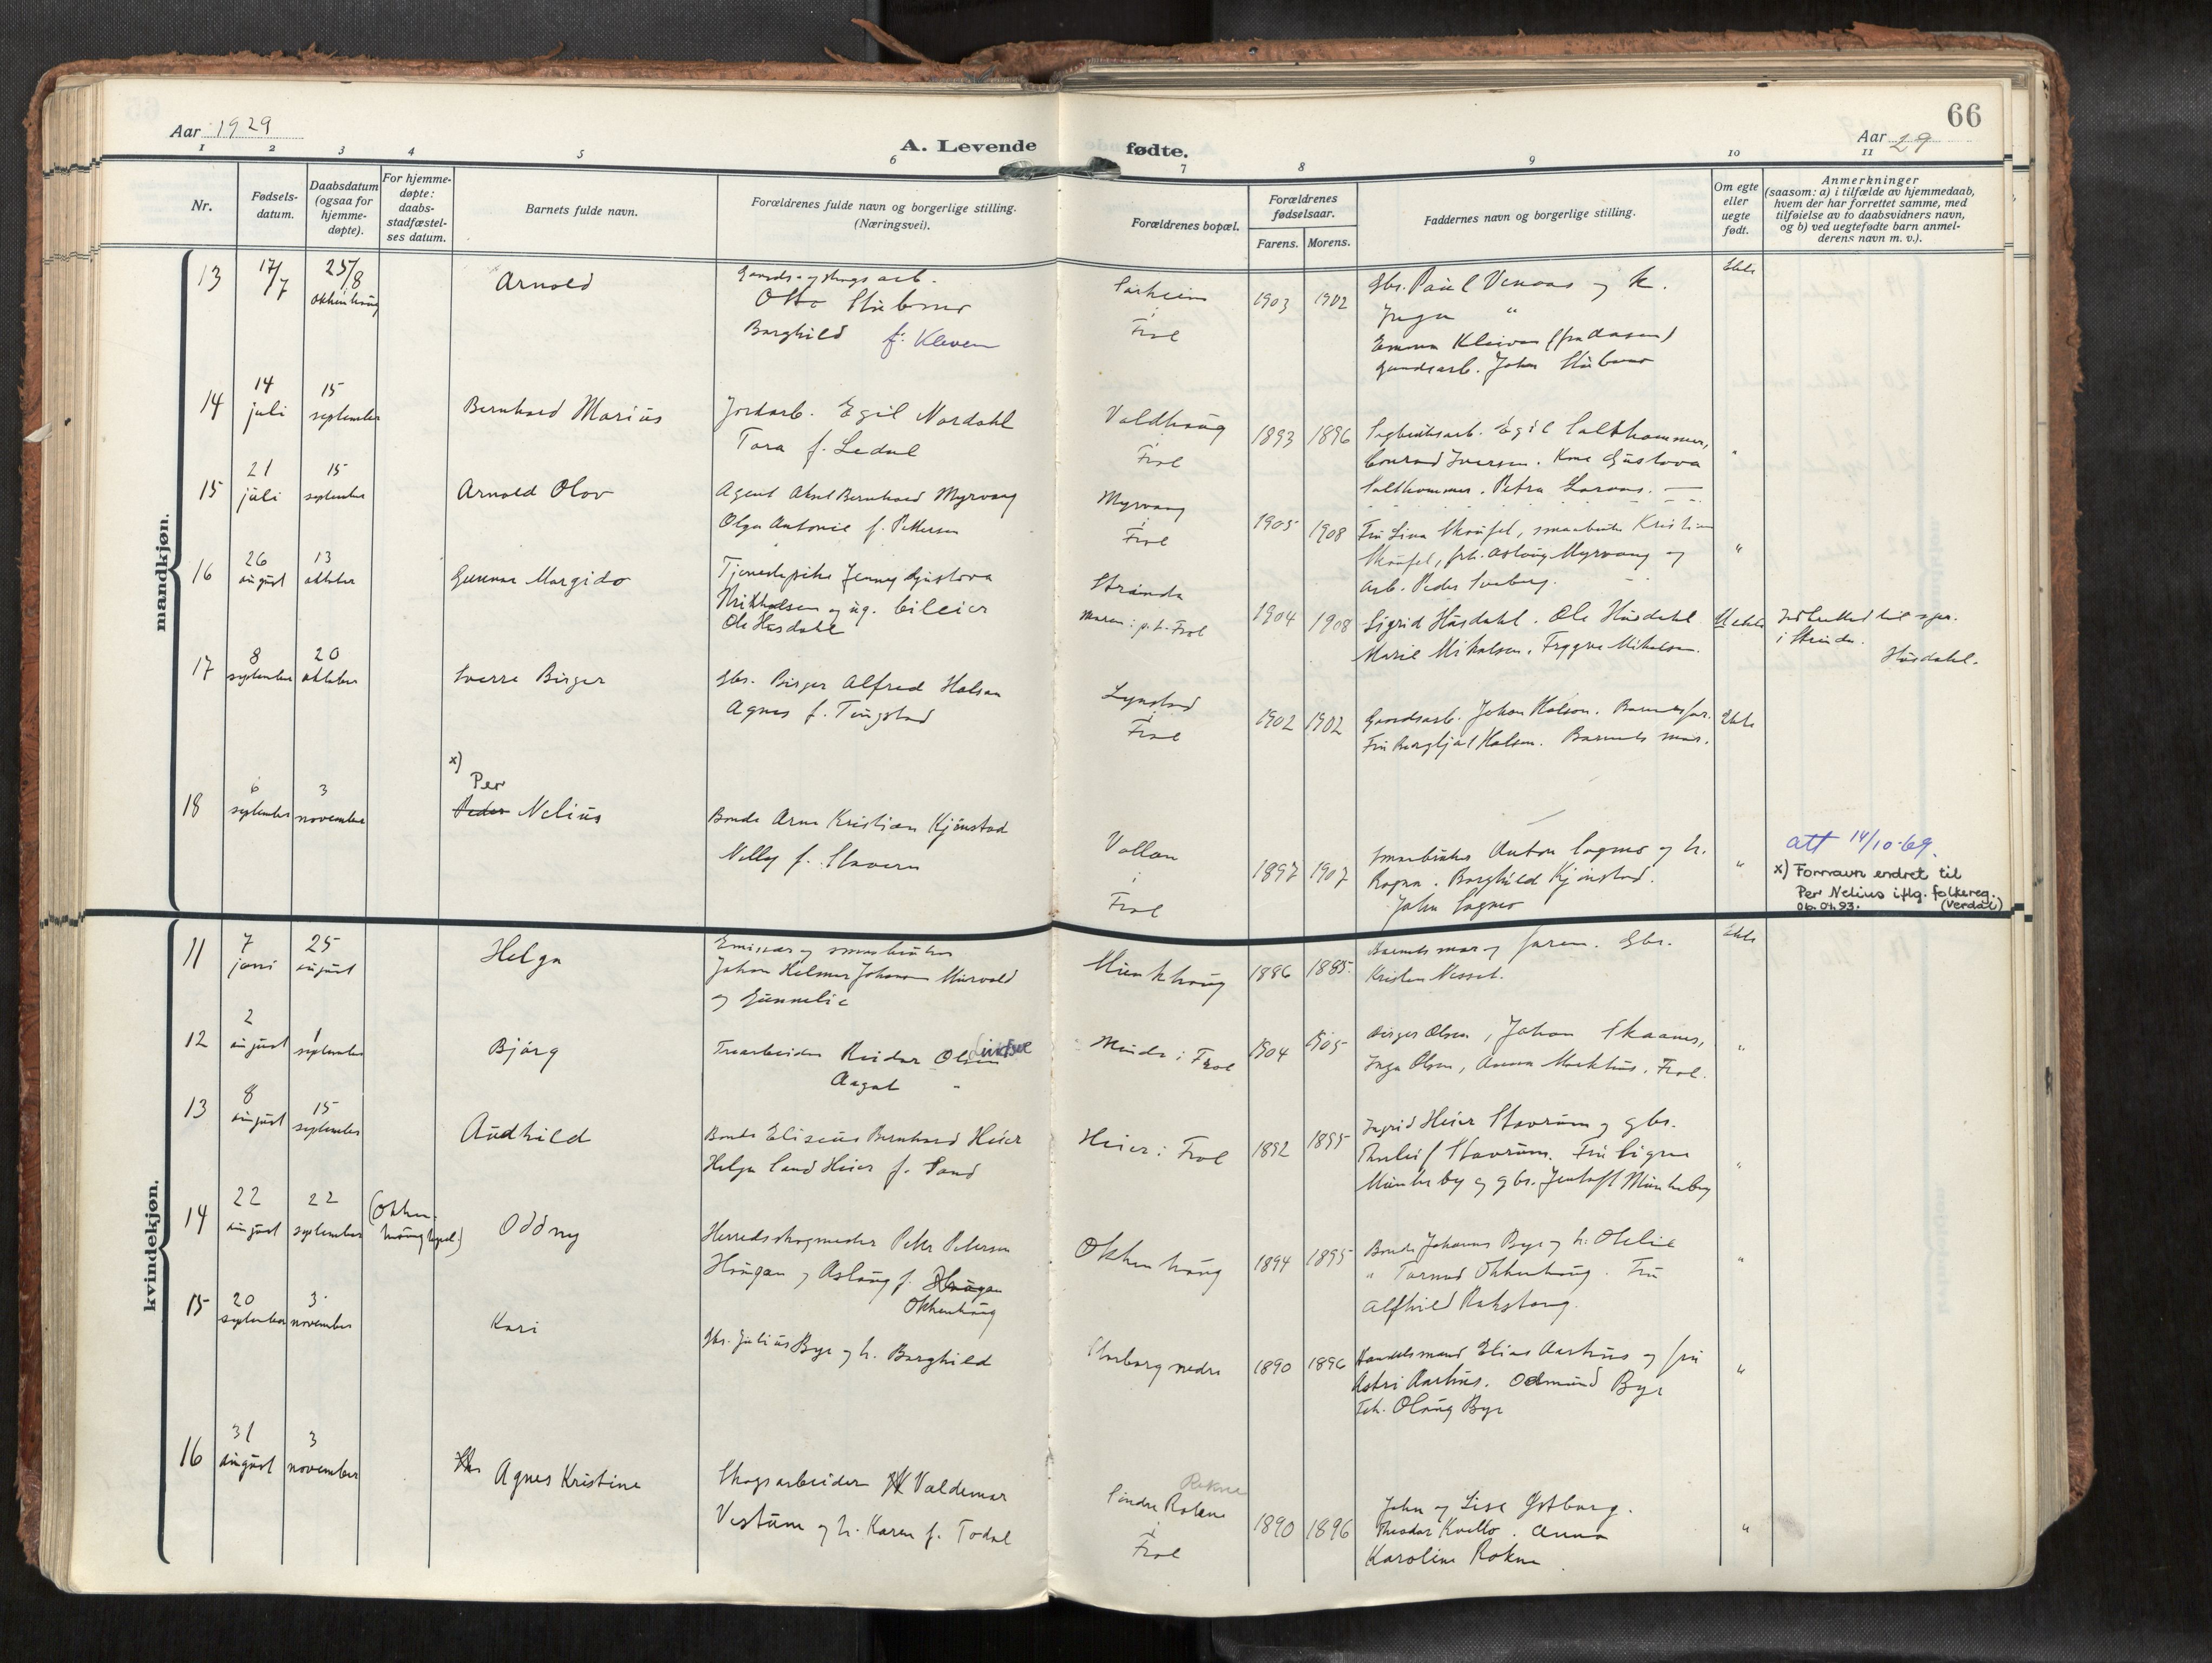 66
Aar 1929
A. Levende fødte.
Aar 29
1 2 3 4 5 6 7 8 9 10 11
Nr.
Fødsels-
datum.
Daabsdatum
(ogsaa for
hjemme-
døpte).
For hjemme-
døpte:
daabs-
stadfæstel-
ses datum.
Barnets fulde navn.
Forældrenes fulde navn og borgerlige stilling.
(Næringsvei).
Forældrenes bopæl.
Forældrenes
fødselsaar.
Farens. Morens.
Faddernes navn og borgerlige stilling.
Om egte
eller
uegte
født.
Anmerkninger
(saasom: a) i tilfælde av hjemmedaab,
hvem der har forrettet samme, med
tilføielse av to daabsvidners navn,
og b) ved uegtefødte barn anmel-
derens navn m. v.).
mandkjøn.
13
17/7
25/8
Okkenhaug
Arnold
Otto Stubmo
Borghild f. Kleven
i
Frol
1903 1902
Gbr. Paul Venaas og h.
Inga "
Gaardsarb. Johan Stubmo
Ekte
14
14
juli
15
september
Bernhard Marius
Jordarb. Egil Nordahl
Tora f. Ledal
Valdhaug
i
Frol
1893 1896
Sagbruksarb. Egil Salthammer,
Conrad Iversen. Kone Gustava
Salthammer. Petra
"
15
21
juli
15
september
Arnold Olav
Agent Aksel Bernhard Myrvang
Olga Antonie f. Pettersen
Myrvang
i
Frol
1905 1908
Fru Lina Skoufel, smaabruker Kristian
Skoufel, frk. Aslaug Myrvang og
arb. Peder
"
16
26
august
13
oktober
Gunnar Margido
Tjenestepike Jenny Gustava
Mikkalsen og ug.
Ole Husdahl
Strinda
Moren: p.t. Frol
1904 1908
Sigrid Husdahl. Ole Husdahl
Marie Mikalsen. Tryggve Mikalsen.
Uekte
i Strinda.
Husdahl.
17
8
september
20
oktober
Sverre Birger
Gbr. Birger Alfred Halsan
Agnes f. Tingstad
Lynstad
i
Frol
1902 1902
Gaardsarb. Johan Halsan. Barnets far.
Fru Bergljot Halsan. Barnets mor.
Ekte
18
6
september
3
november
x)
Per
Peder Nelius
Bonde Arne Kristian Kjønstad
Nelly f. Stavern
Vollan
i
Frol
1897 1907
Smaabruker Anton Sagmo og h.
Ragna. Borghild Kjønstad.
John Sagmo
"
att 14/10-69.
x) Fornavn endret til
Per Nelius iflg. folkereg.
06.04.93. (Verdal)
kvindekjøn.
11
7
juni
25
august
Helga
Emissær og smaabruker
Johan Helmer Johansen Murvold
og Gunnelie
Munkhaug
1886 1885
Barnets mor og faren. Gbr.
Kristen Nesset.
Ekte
12
2
august
1
september
Bjørg
Trearbeider Reidar Olsen
Aagot "
Minde i Frol
1904 1905
Birger Olsen, Johan Skaanes,
Inga Olsen, Anna Markhus. Frol.
"
13
8
august
15
september
Audhild
Bonde Eliseus Bernhard Heier
Helga Sand Heier f. Sand
Heier i Frol
1892 1895
Ingrid Heier Stavrum og gbr.
Stavrum. Fru Signe
Munkeby og gbr. Jentoft Munkeby
"
14
22
august
22
september
(Okken-
haug kpel.)
Oddny
Herredsskogmester Peter Petersen
Haugan og Aslaug f. Haugan
Okkenhaug
Okkenhaug
1894 1895
Bonde Johannes Bye og h. Otelie
" Tormod Okkenhaug. Fru
Alfhild Rokstang.
"
15
20
september
3
november
Kari
Gbr. Julius Bye og h. Borghild
Storborg nedre
1890 1896
Handelsmand Elias Aarhus og fru
Astri Aarhus. Odmund Bye
Frk. Olaug Bye
"
16
31
august
3
november
Agnes Kristine
Skogsarbeider Valdemar
Vestum og h. Karen f. Todal
Rokne
Søndre Rokne
i
Frol
1890 1896
John og Lise Østborg.
Teodor Kvello. Anna
Karoline Rokne
"